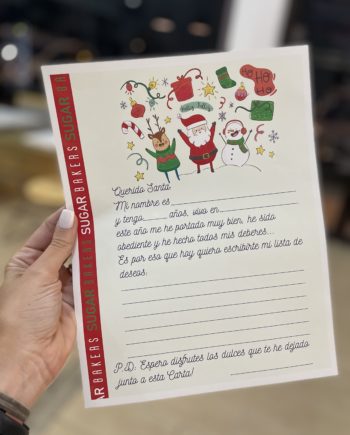 HO HO HO
Querido Santa
Mi nombre es
y tengo años, vivo en
este año me he portado muy bien, he sido
obediente y he hecho todos mis deberes...
Es por eso que hoy quiero escribirte mi lista de
deseos.
P.D: Espero disfrutes los dulces que te he dejado
junto a esta Carta!
SUGAR BAKERS SUGAR BAKERS SUGAR BAKERS